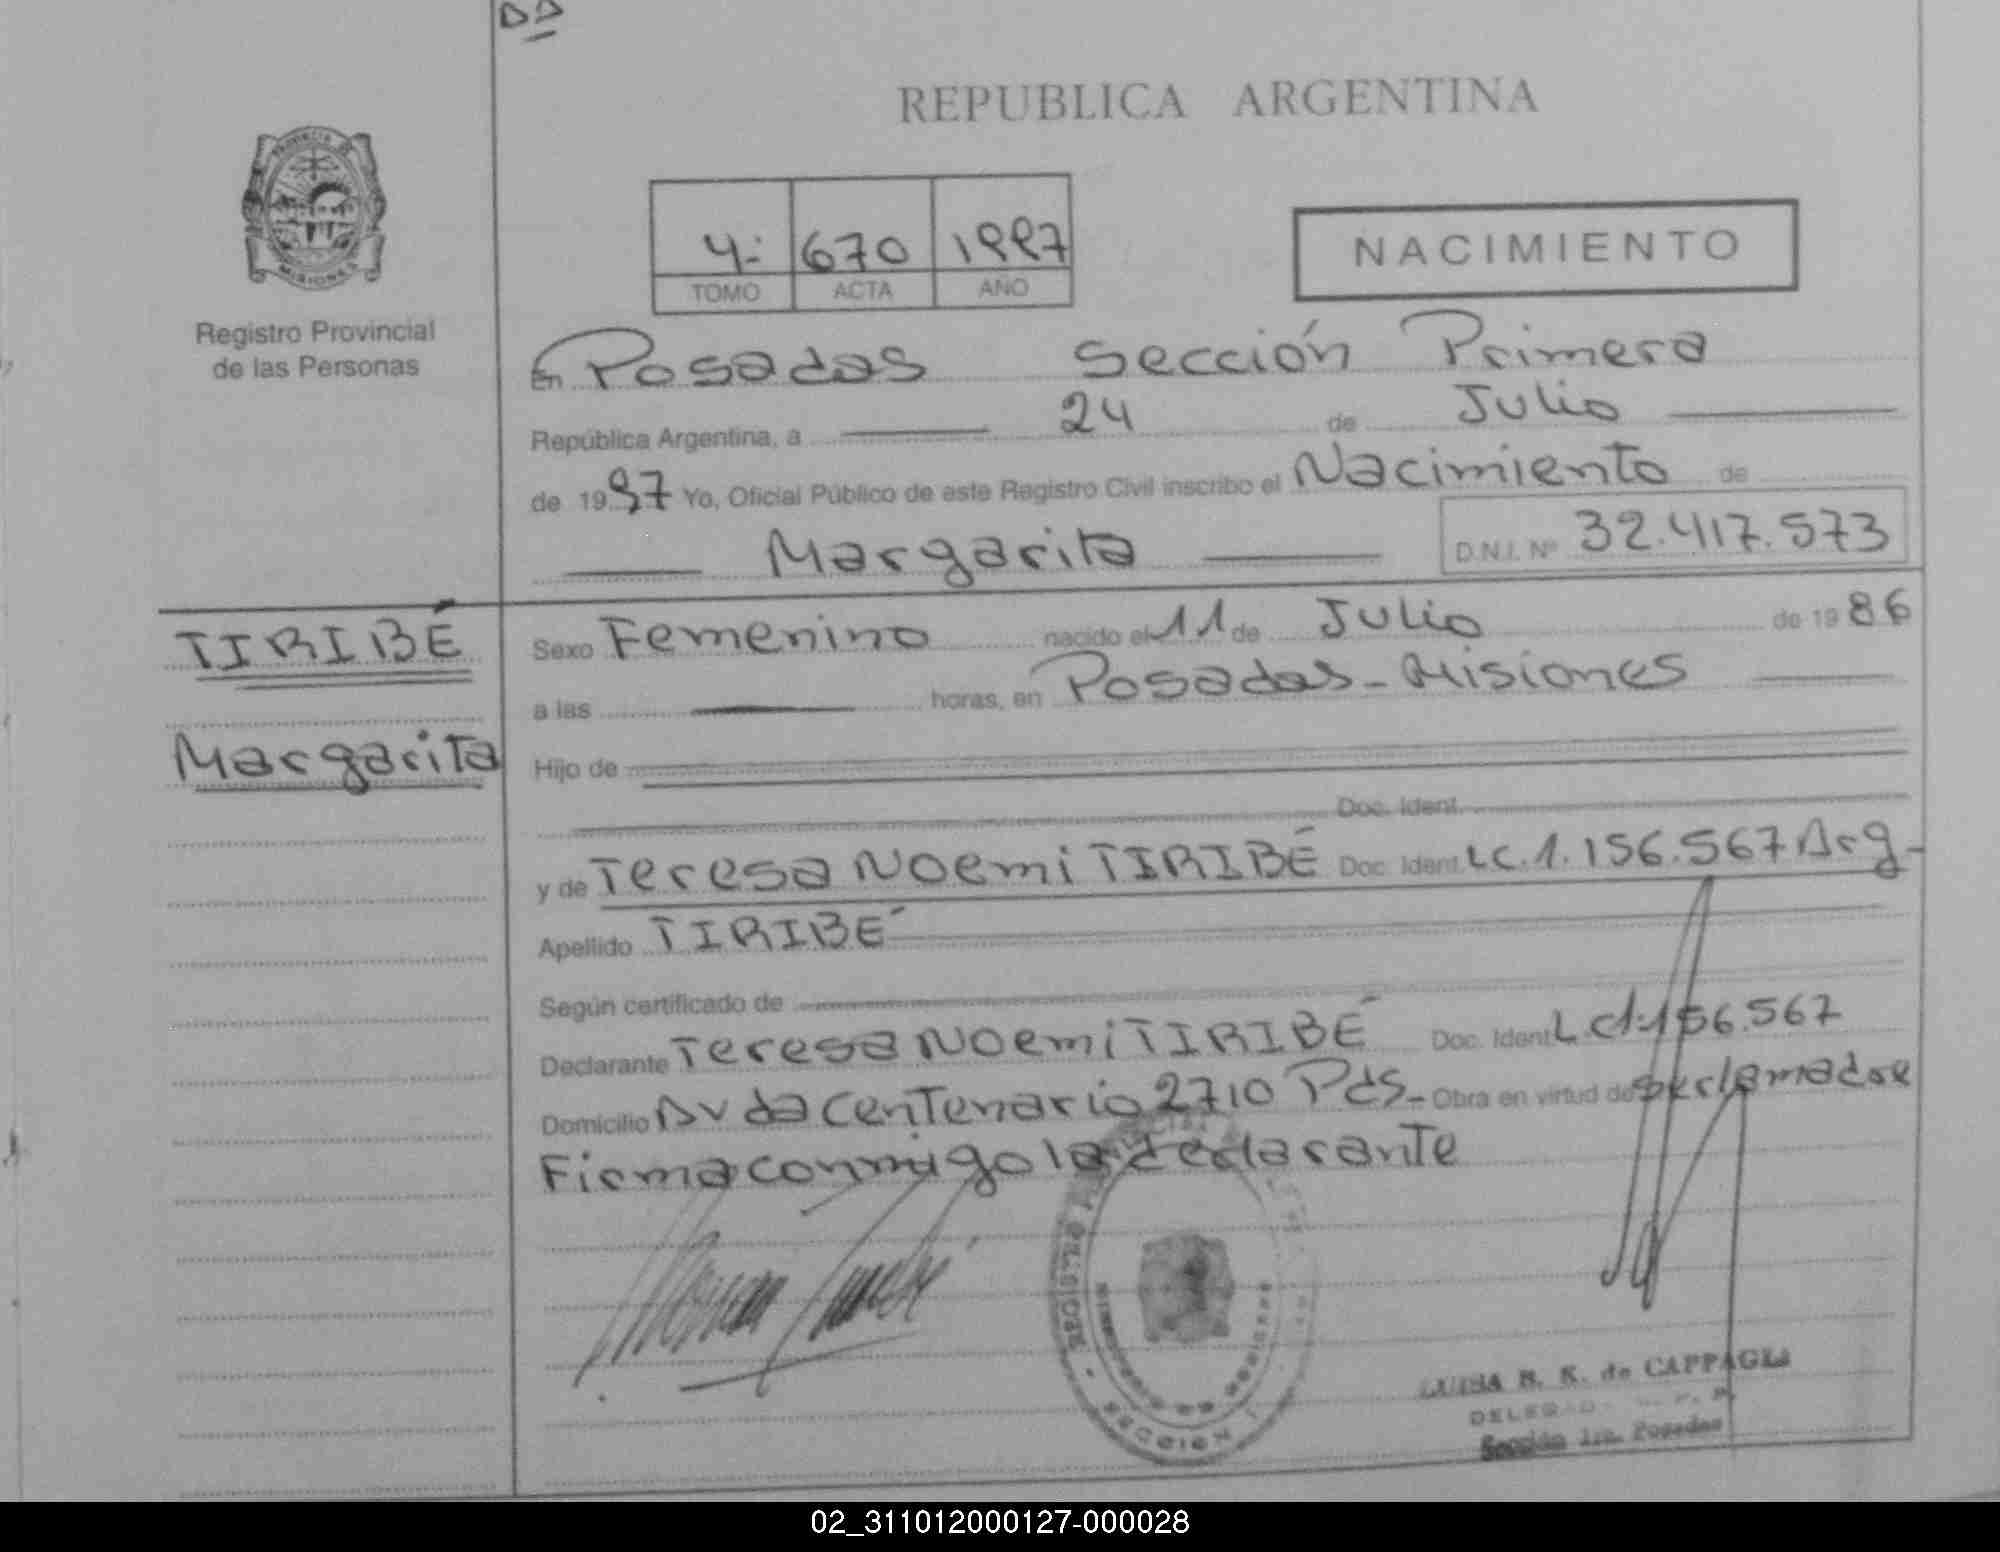 REPUBLICA ARGENTINA
PROVINCIA DE
MISIONES
Registro Provincial
de las Personas
4- 670 1997
TOMO ACTA AÑO
NACIMIENTO
En Posadas Sección Primera
República Argentina, a 24 de Julio
de 1997 Yo, Oficial Público de este Registro Civil inscribo el Nacimiento de
Margarita D.N.I. Nº 32.417.573
TIRIBÉ
Margarita
Sexo Femenino nacido el 11 de Julio de 1986
a las horas, en Posadas - Misiones
Hijo de
Doc. Ident.
y de Teresa Noemi TIRIBÉ Doc. Ident. LC.1.156.567 Arg-
Apellido TIRIBÉ
Según certificado de
Declarante Teresa Noemi TIRIBÉ Doc. Ident L.C1.156.567
Domicilio Avda Centenario 2710 Pds- Obra en virtud de ser la madre
Firma conmigo la declarante
SECCION 1
LUISA B. K. de CAPPAGLI
Sección 1ra. Posadas
02_311012000127-000028